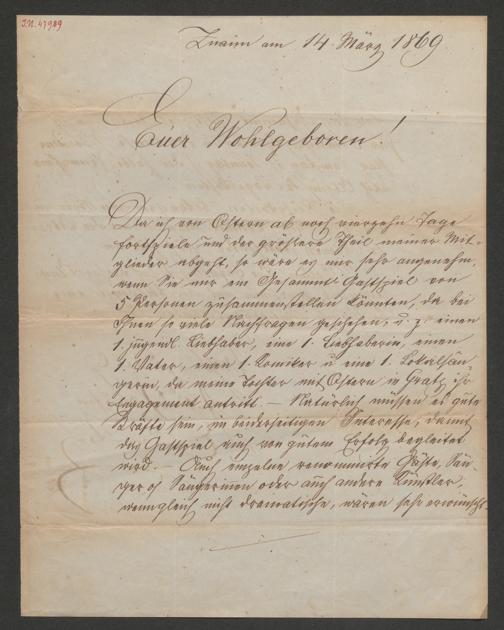 I.N. 47989
Znaim am 14. März 1869
Euer Wohlgeboren!
Da ich von Ostern ab noch vierzehn Tage
fortspiele und der größere Theil meiner Mit-
glieder abgeht, so wäre es mir sehr angenehm,
wenn Sie mir ein Gesammt-Gastspiel von
5 Personen zusammenstellen könnten, da bei
Ihnen so viele Nachfragen geschehen, u. z. einen
1. jugendl. Liebhaber, eine 1. Liebhaberin, einen
1. Vater, einen 1. Komiker u eine 1. Lokalsän-
gerin, da meine Tochter mit Ostern in Gratz ihr
Engagement antritt. — Natürlich müssen es gute
Kräfte sein, im beiderseitigen Interesse, damit
das Gastspiel auch von gutem Erfolg begleitet
wird. — Auch einzelne renommirte Gäste, Sän-
ger o/ Sängerinen oder auch andere Künstler,
wenngleich nicht dramatische, wären sehr erwünscht.